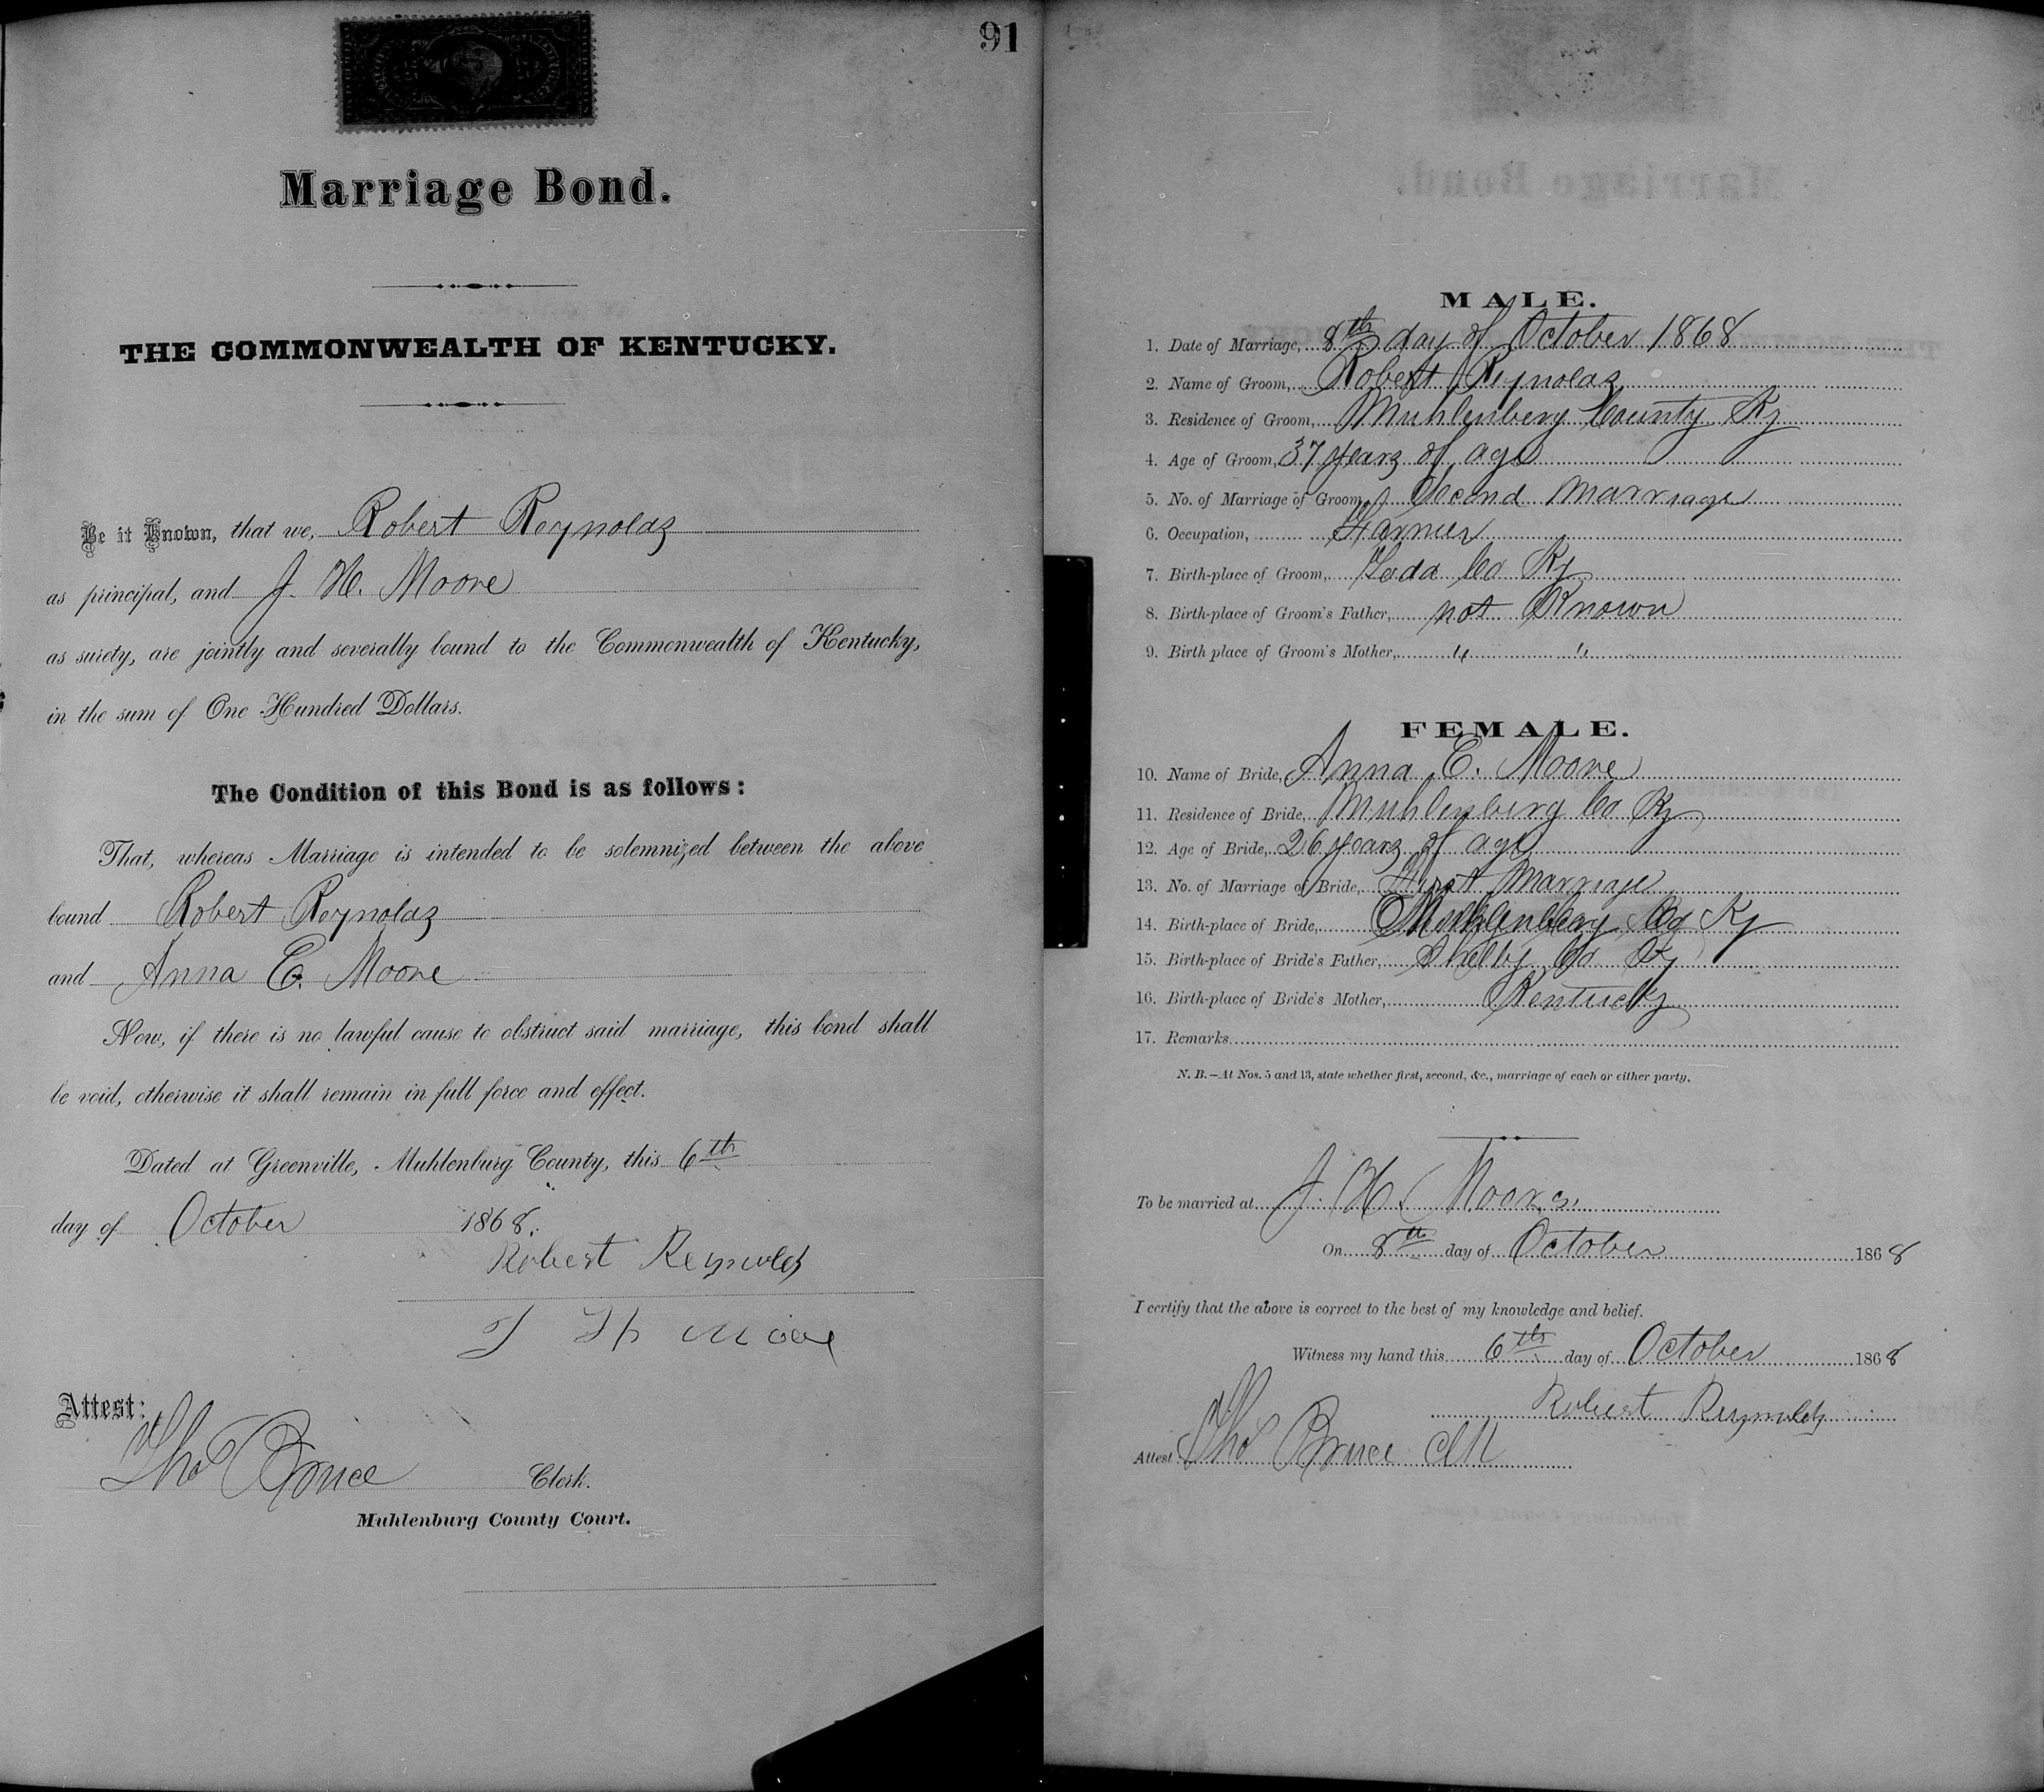 91
Marriage Bond.
THE COMMONWEALTH OF KENTUCKY.
Be it Known, that we, Robert Reynolds
as principal, and J. H. Moore
as surety, are jointly and severally bound to the Commonwealth of Kentucky,
in the sum of One Hundred Dollars.
The Condition of this Bond is as follows:
That, whereas Marriage is intended to be solemnized between the above
bound Robert Reynolds
and Anna E. Moore
Now, if there is no lawful cause to obstruct said marriage, this bond shall
be void, otherwise it shall remain in full force and effect.
Dated at Greenville, Muhlenburg County, this 6th
day of October 1868.
Robert Reynolds
J H Moore
Attest:
Tho Bruce Clerk.
Muhlenburg County Court.
MALE.
1. Date of Marriage, 8th day of October 1868
2. Name of Groom, Robert Reynolds
3. Residence of Groom, Muhlenberg County Ky
4. Age of Groom, 37 years of age
5. No. of Marriage of Groom, Second Marriage
6. Occupation, Farmer
7. Birth-place of Groom, Todd Co Ky
8. Birth-place of Groom's Father, not Known
9. Birth place of Groom's Mother, " "
FEMALE.
10. Name of Bride, Anna E. Moore
11. Residence of Bride, Muhlenberg Co Ky
12. Age of Bride, 26 years of age
13. No. of Marriage of Bride, First Marriage
14. Birth-place of Bride, Muhlenberg Co Ky
15. Birth-place of Bride's Father, Shelby Co Ky
16. Birth-place of Bride's Mother, Kentucky
17. Remarks
N. B.—At Nos. 5 and 13, state whether first, second, &c., marriage of each or either party.
To be married at J. H. Moores
On 8th day of October 1868
I certify that the above is correct to the best of my knowledge and belief.
Witness my hand this 6th day of October 1868
Robert Reynolds
Attest Tho Bruce